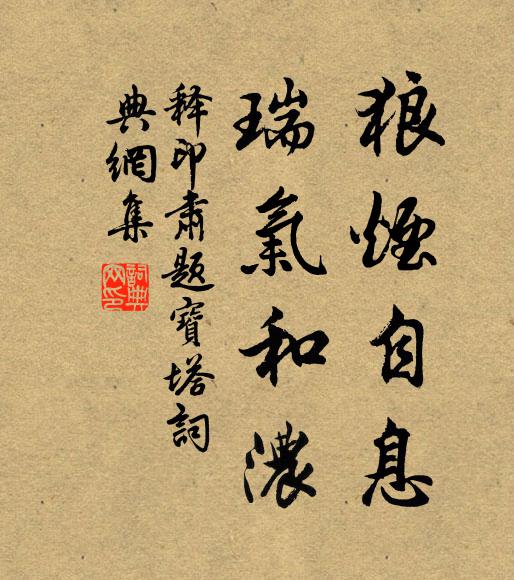 狼煙自息
瑞氣和濃
释印肅題寶塔詞
典網集
詞典網印